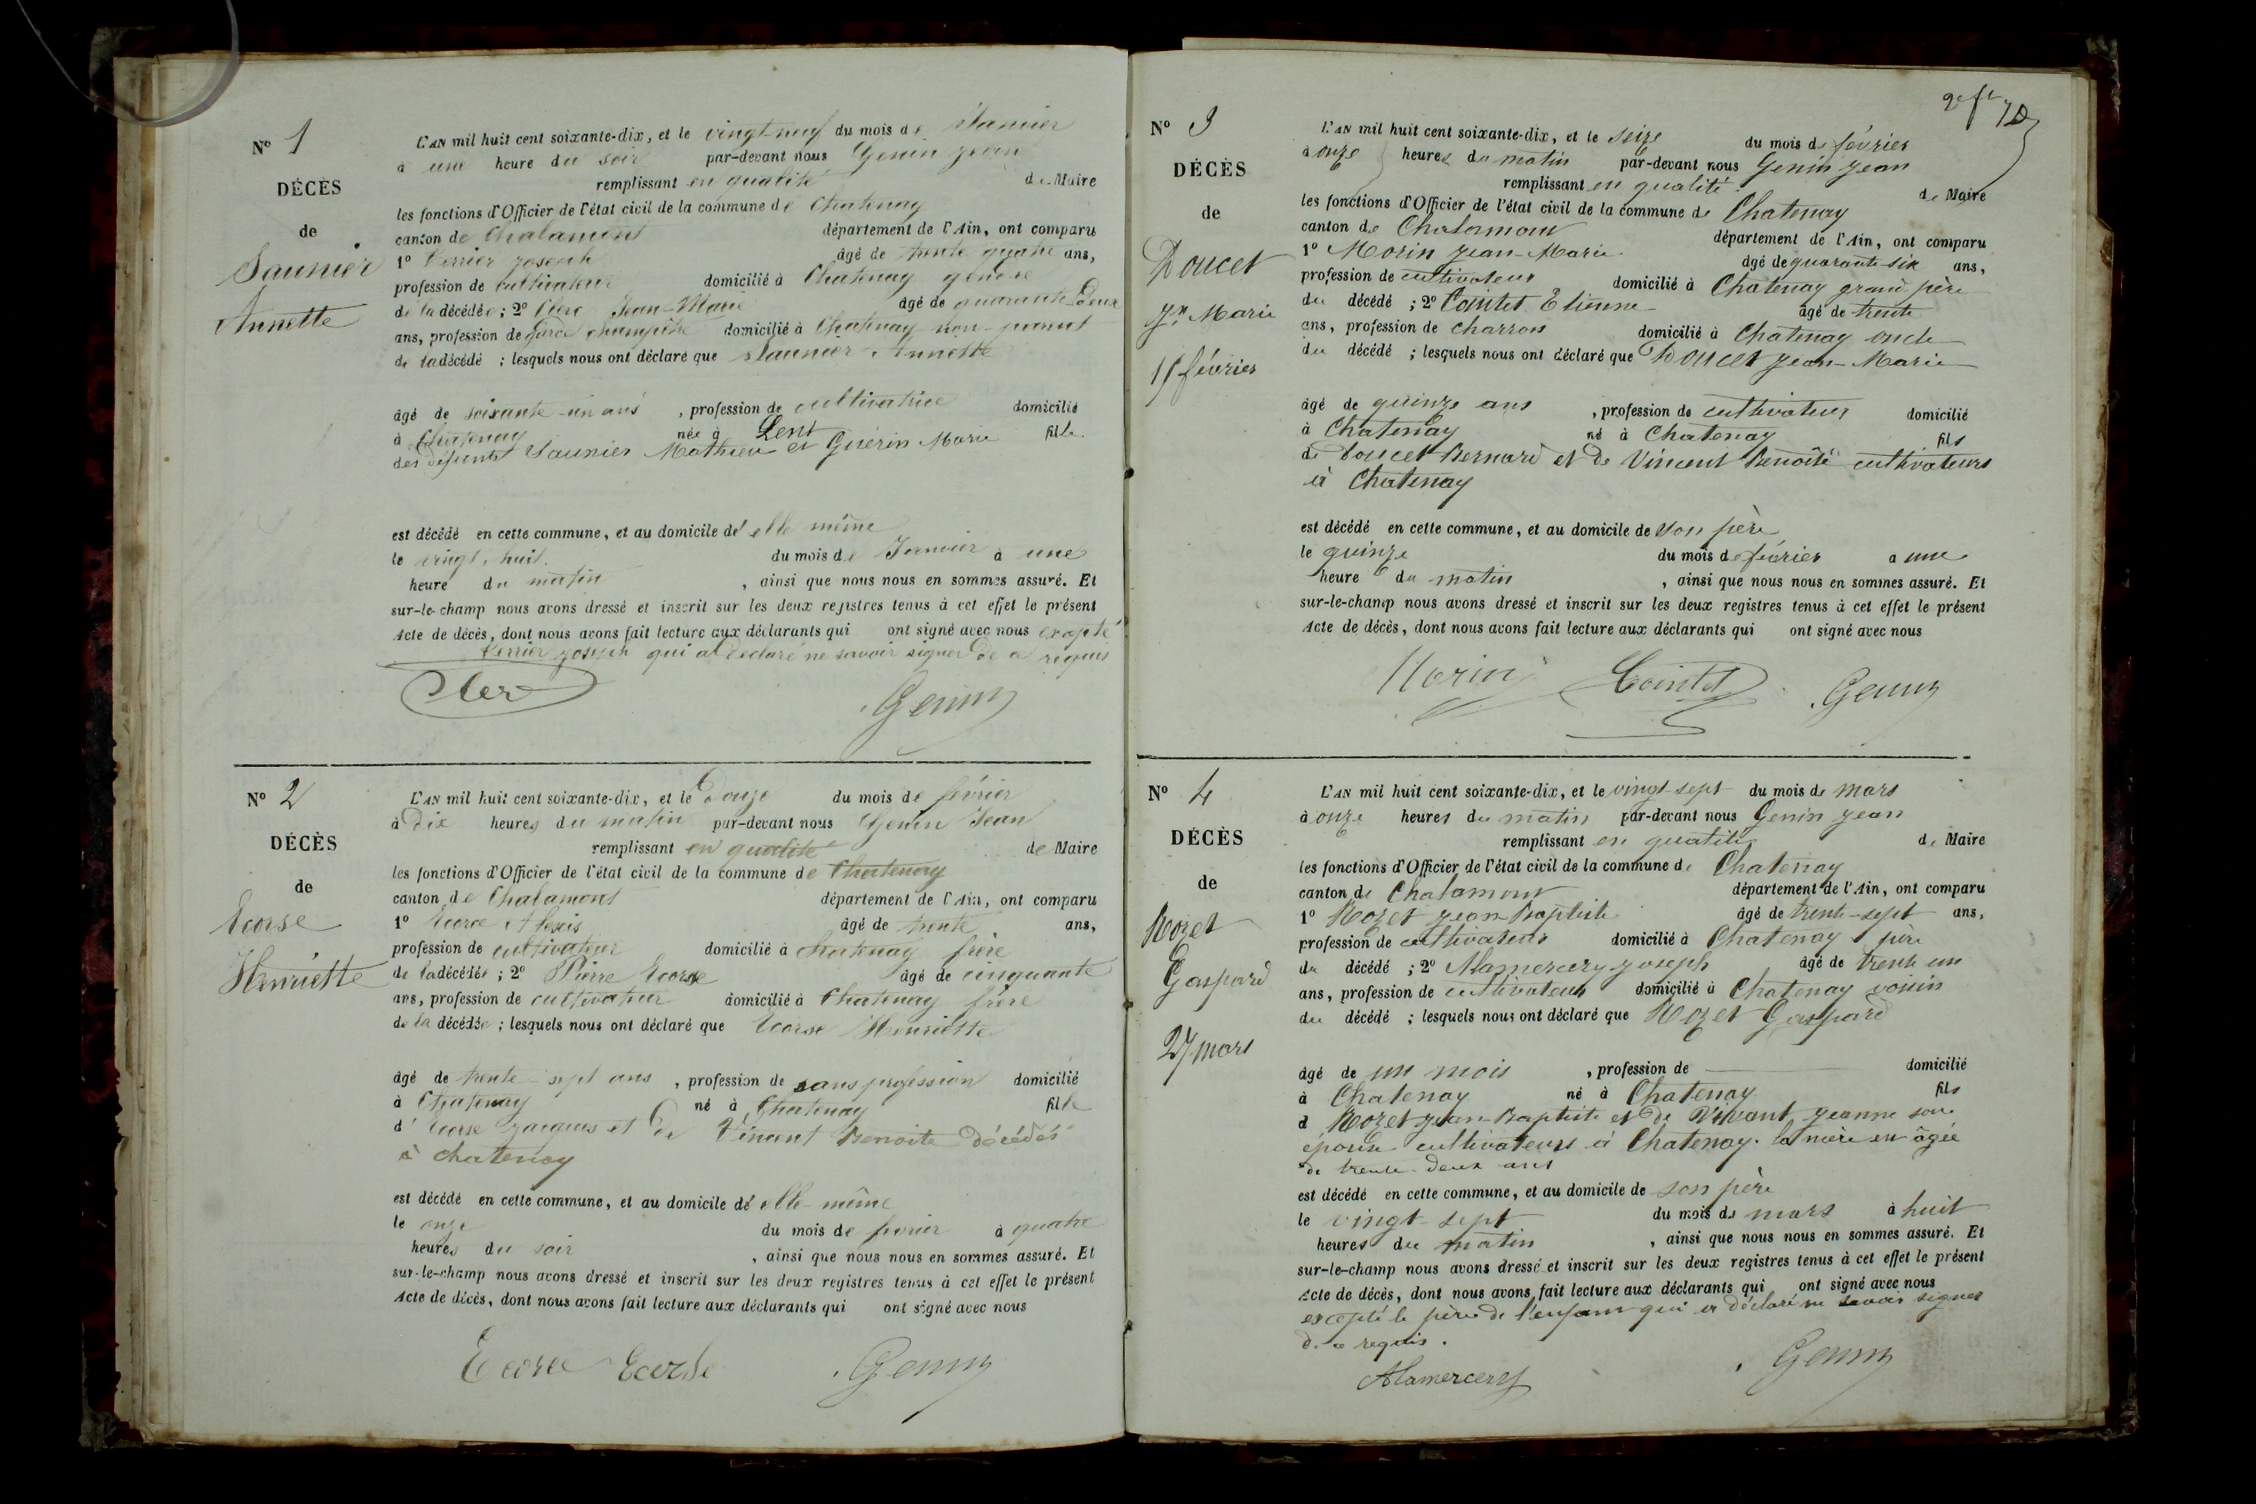 Nº 1
DÉCÈS
de
Saunier
Annette
L'AN mil huit cent soixante-dix, et le vingt-neuf du mois de Janvier
à une heure du soir par-devant nous Genin Jean
remplissant en qualité de Maire
les fonctions d'Officier de l'état civil de la commune de Chatenay
canton de Chalamont département de l'Ain, ont comparu
1º Perrier Joseph âgé de trente quatre ans,
profession de cultivateur domicilié à Chatenay gendre
de la décédée ; 2º Clerc Jean-Marie âgé de quarante-deux
ans, profession de garde champêtre domicilié à Chatenay non-parent
de la décédé ; lesquels nous ont déclaré que Saunier Annette
âgé de soixante-un ans , profession de cultivatrice domicilié
à Chatenay née à Lent fille
des défunts Saunier Mathieu et Guérin Marie
est décédé en cette commune, et au domicile d'elle même
le vingt-huit du mois de Janvier à une
heure du matin , ainsi que nous nous en sommes assuré. Et
sur-le-champ nous avons dressé et inscrit sur les deux registres tenus à cet effet le présent
Acte de décès, dont nous avons fait lecture aux déclarants qui ont signé avec nous excepté
Perrier Joseph qui a déclaré ne savoir signer de ce requis
Clerc Genin
Nº 2
DÉCÈS
de
Ecorse
Henriette
L'AN mil huit cent soixante-dix, et le Douze du mois de février
à Dix heures du matin par-devant nous Genin Jean
remplissant en qualité de Maire
les fonctions d'Officier de l'état civil de la commune de Chatenay
canton de Chalamont département de l'Ain, ont comparu
1º Ecorse Alexis âgé de trente ans,
profession de cultivateur domicilié à Chatenay frère
de la décédée ; 2º Pierre Ecorse âgé de cinquante
ans, profession de cultivateur domicilié à Chatenay frère
de la décédée ; lesquels nous ont déclaré que Ecorse Henriette
âgé de trente-sept ans , profession de sans profession domicilié
à Chatenay né à Chatenay fille
d'Ecorse Jacques et de Vincent Benoite décédés
à chatenay
est décédé en cette commune, et au domicile d'elle-même
le onze du mois de fevrier à quatre
heures du soir , ainsi que nous nous en sommes assuré. Et
sur-le-champ nous avons dressé et inscrit sur les deux registres tenus à cet effet le présent
Acte de décès, dont nous avons fait lecture aux déclarants qui ont signé avec nous
Ecorse Ecorse Genin
Nº 3
DÉCÈS
de
Doucet
Jn Marie
15 février
L'AN mil huit cent soixante-dix, et le seize du mois de février
à onze heures du matin par-devant nous Genin Jean
remplissant en qualité de Maire
les fonctions d'Officier de l'état civil de la commune de Chatenay
canton de Chalamont département de l'Ain, ont comparu
1º Morin Jean-Marie âgé de quarante-six ans,
profession de cultivateur domicilié à Chatenay grand-père
du décédé ; 2º Cointet Etienne âgé de trente
ans, profession de charron domicilié à Chatenay oncle
du décédé ; lesquels nous ont déclaré que Doucet Jean-Marie
âgé de quinze ans , profession de cultivateur domicilié
à Chatenay né à Chatenay fils
de Doucet Bernard et de Vincent Benoîte cultivateurs
à Chatenay
est décédé en cette commune, et au domicile de son père
le quinze du mois de février à une
heure du matin , ainsi que nous nous en sommes assuré. Et
sur-le-champ nous avons dressé et inscrit sur les deux registres tenus à cet effet le présent
Acte de décès, dont nous avons fait lecture aux déclarants qui ont signé avec nous
Morin Cointet Genin
Nº 4
DÉCÈS
de
Rozet
Gaspard
27 mars
L'AN mil huit cent soixante-dix, et le vingt-sept du mois de mars
à onze heures du matin par-devant nous Genin Jean
remplissant en qualité de Maire
les fonctions d'Officier de l'état civil de la commune de Chatenay
canton de Chalamont département de l'Ain, ont comparu
1º Rozet Jean-Baptiste âgé de trente-sept ans,
profession de cultivateur domicilié à Chatenay père
du décédé ; 2º Alamercery Joseph âgé de trente un
ans, profession de cultivateur domicilié à Chatenay voisin
du décédé ; lesquels nous ont déclaré que Rozet Gaspard
âgé de un mois , profession de domicilié
à Chatenay né à Chatenay fils
d Rozet Jean-Baptiste et de Vivant Jeanne son
épouse cultivateurs à Chatenay. la mère est âgée
de trente-deux ans
est décédé en cette commune, et au domicile de son père
le vingt-sept du mois de mars à huit
heures du matin , ainsi que nous nous en sommes assuré. Et
sur-le-champ nous avons dressé et inscrit sur les deux registres tenus à cet effet le présent
Acte de décès, dont nous avons fait lecture aux déclarants qui ont signé avec nous
excepté le père de l'enfant qui a déclaré ne savoir signer
de ce requis.
Alamercery Genin